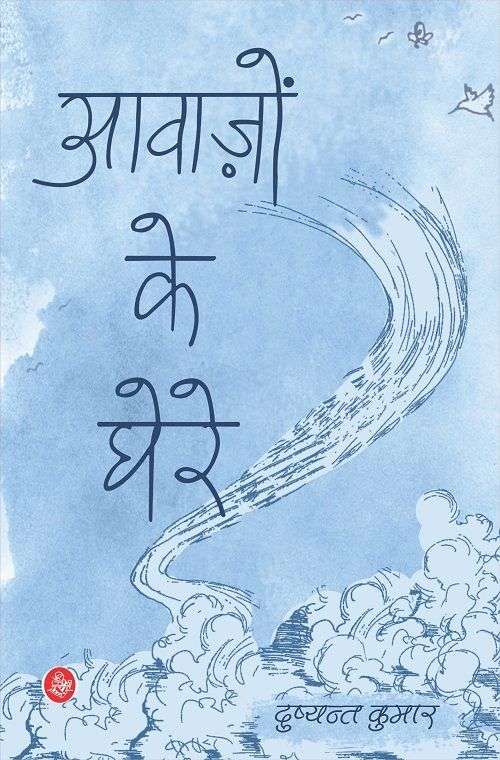 आवाज़ों
के
घेरे
दुष्यन्त कुमार